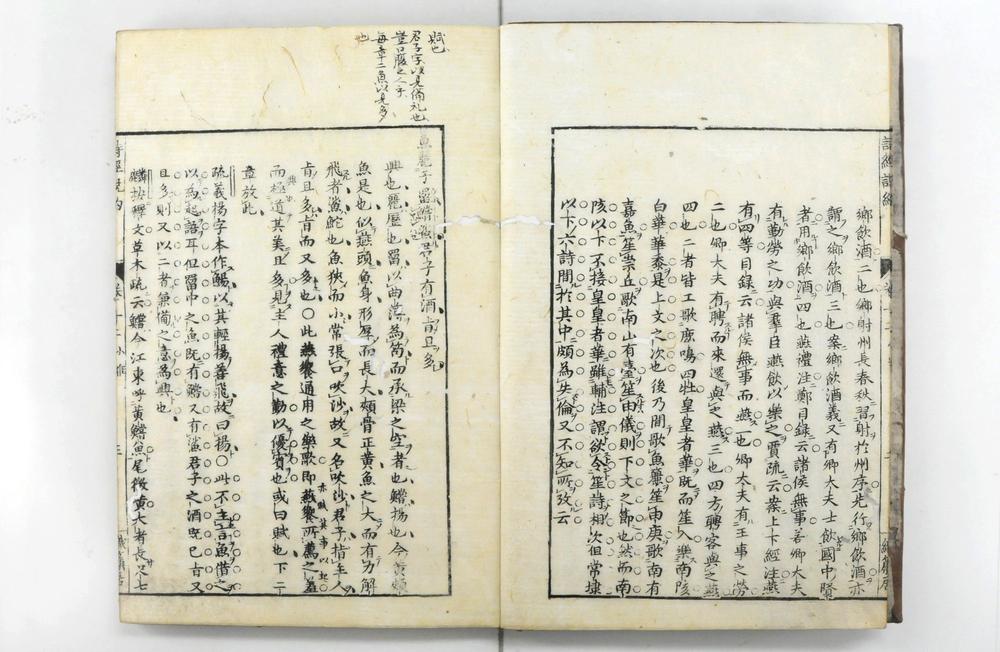 鄉飲酒二也鄉射州長春秋習射於州序先行鄉飲酒亦
謂之鄉飲酒三也案鄉飲酒義又有卿大夫士飲國中賢
者用鄉飲酒四也燕禮注鄭目錄云諸侯無事若卿大夫
有勤勞之功與羣臣燕飲以樂之賈疏云案上下經注燕
有四等目録云諸侯無事而燕一也卿大夫有王事之勞
二也卿大夫有聘而來還與之燕三也四方聘客與之燕
四也二者皆工歌鹿鳴四牡皇皇者華既而笙入樂南陔
白華華黍是上文之次也後乃間歌魚麗笙由庚歌南有
嘉魚笙崇丘歌南山有臺笙由儀則下文之節也然而南
陔以下不接皇皇者華雖輔注謂欲令笙詩相次但常棣
以下六詩間於其中頗為失倫又不知所攷云
魚麗于罶鱨鯊君子有酒旨且多
興也麗歷也罶以曲薄為笱而承梁之空者也鱨揚也今黃頰
魚是也似燕頭魚身形厚而長大頰骨正黃魚之大而有力解
飛者鯊鮀也魚狹而小常張口吹沙故又名吹沙君子指主人
旨且多旨而又多也○此燕饗通用之樂歌即燕饗所薦之羞
而極道其美且多見主人禮意之勤以優賓也或曰賦也下二
章放此
疏義楊字本作鰑以其輕揚善飛故曰楊○此不主言魚借之
以為起語耳但罶中之魚既有鱨又有鯊君子之酒既已旨又
且多則又以二者兼備之意為興也
麟按釋文草木疏云鱨今江東呼黃鱨魚尾微黃大者長尺七
賦也
君子字以見備礼也
豈口腹之人乎
每章二魚以見多
也
亦賦其事以起
詩經說約
卷十二 小雅
三